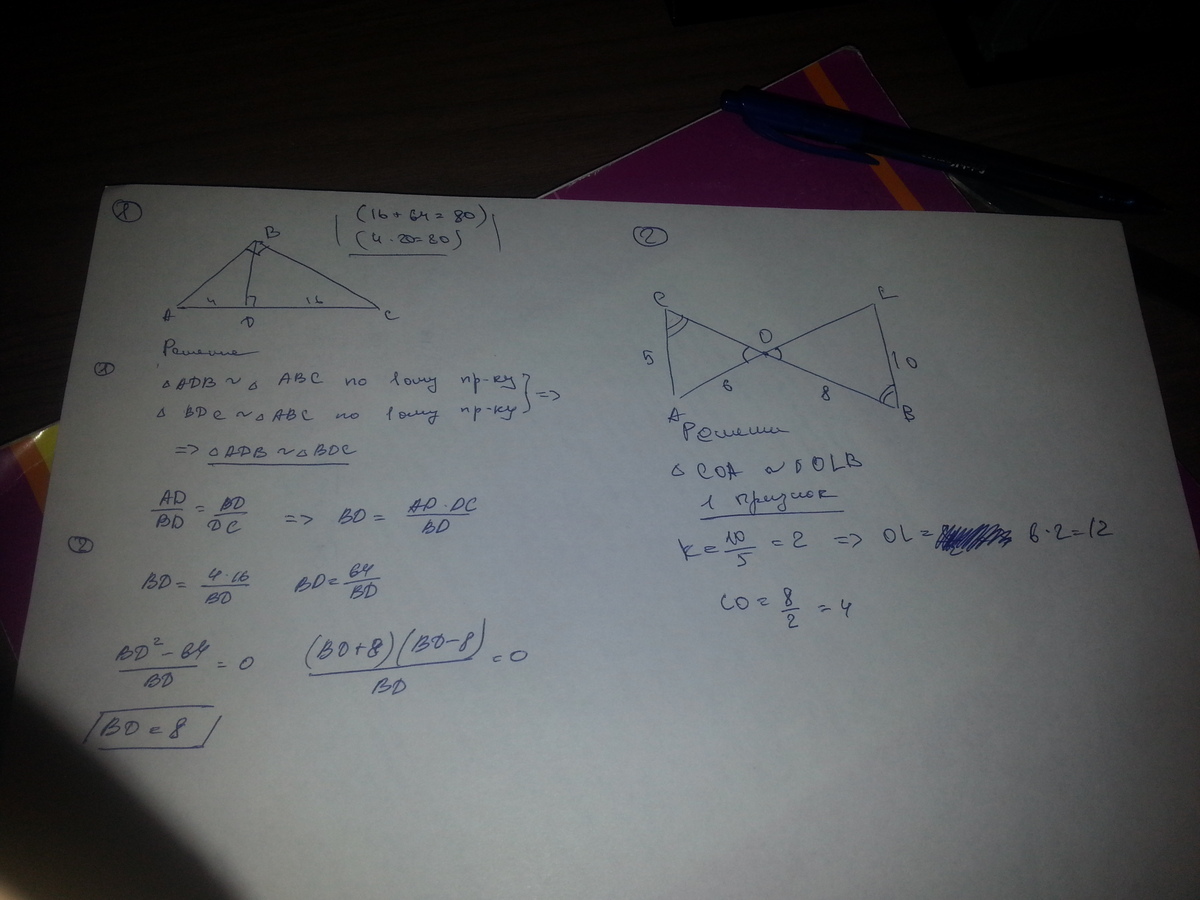 1
(16+64=80)
(4·20=80)
B
4
16
A
D
C
Решение
1
△ADB ~ △ ABC по 1ому пр-ку
△ BDC ~ △ABC по 1ому пр-ку
=>
=> △ADB ~ △BDC
AD/BD = BD/DC => BD = AD·DC/BD
2
BD = 4·16/BD BD = 64/BD
BD² - 64/BD = 0 (BD+8)(BD-8)/BD = 0
BD = 8
2
C
L
O
5
10
6
8
A
B
△ COA ~ △ OLB
1 признак
K = 10/5 = 2 => OL = 6·2=12
CO = 8/2 = 4